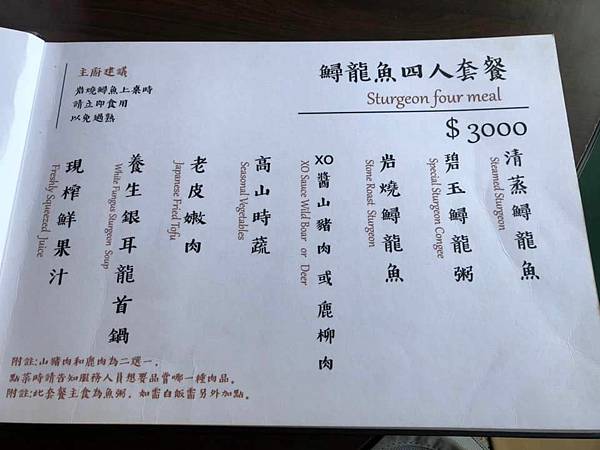 鱘龍魚四人套餐
Sturgeon four meal
$ 3000
主廚建議
岩燒鱘魚上桌時
請立即食用
以免過熟
清蒸鱘龍魚
Steamed Sturgeon
碧玉鱘龍粥
Special Sturgeon Congee
岩燒鱘龍魚
Stone Roast Sturgeon
XO醬山豬肉或鹿柳肉
XO Sauce Wild Boar or Deer
高山時蔬
Seasonal Vegetables
老皮嫩肉
Japanese Fried Tofu
養生銀耳龍首鍋
While Fungus Sturgeon Soup
現榨鮮果汁
Freshly Squeezed Juice
附註:山豬肉和鹿肉為二選一,
點菜時請告知服務人員想要品嘗哪一種肉品。
附註:此套餐主食為魚粥,如需白飯需另外加點。